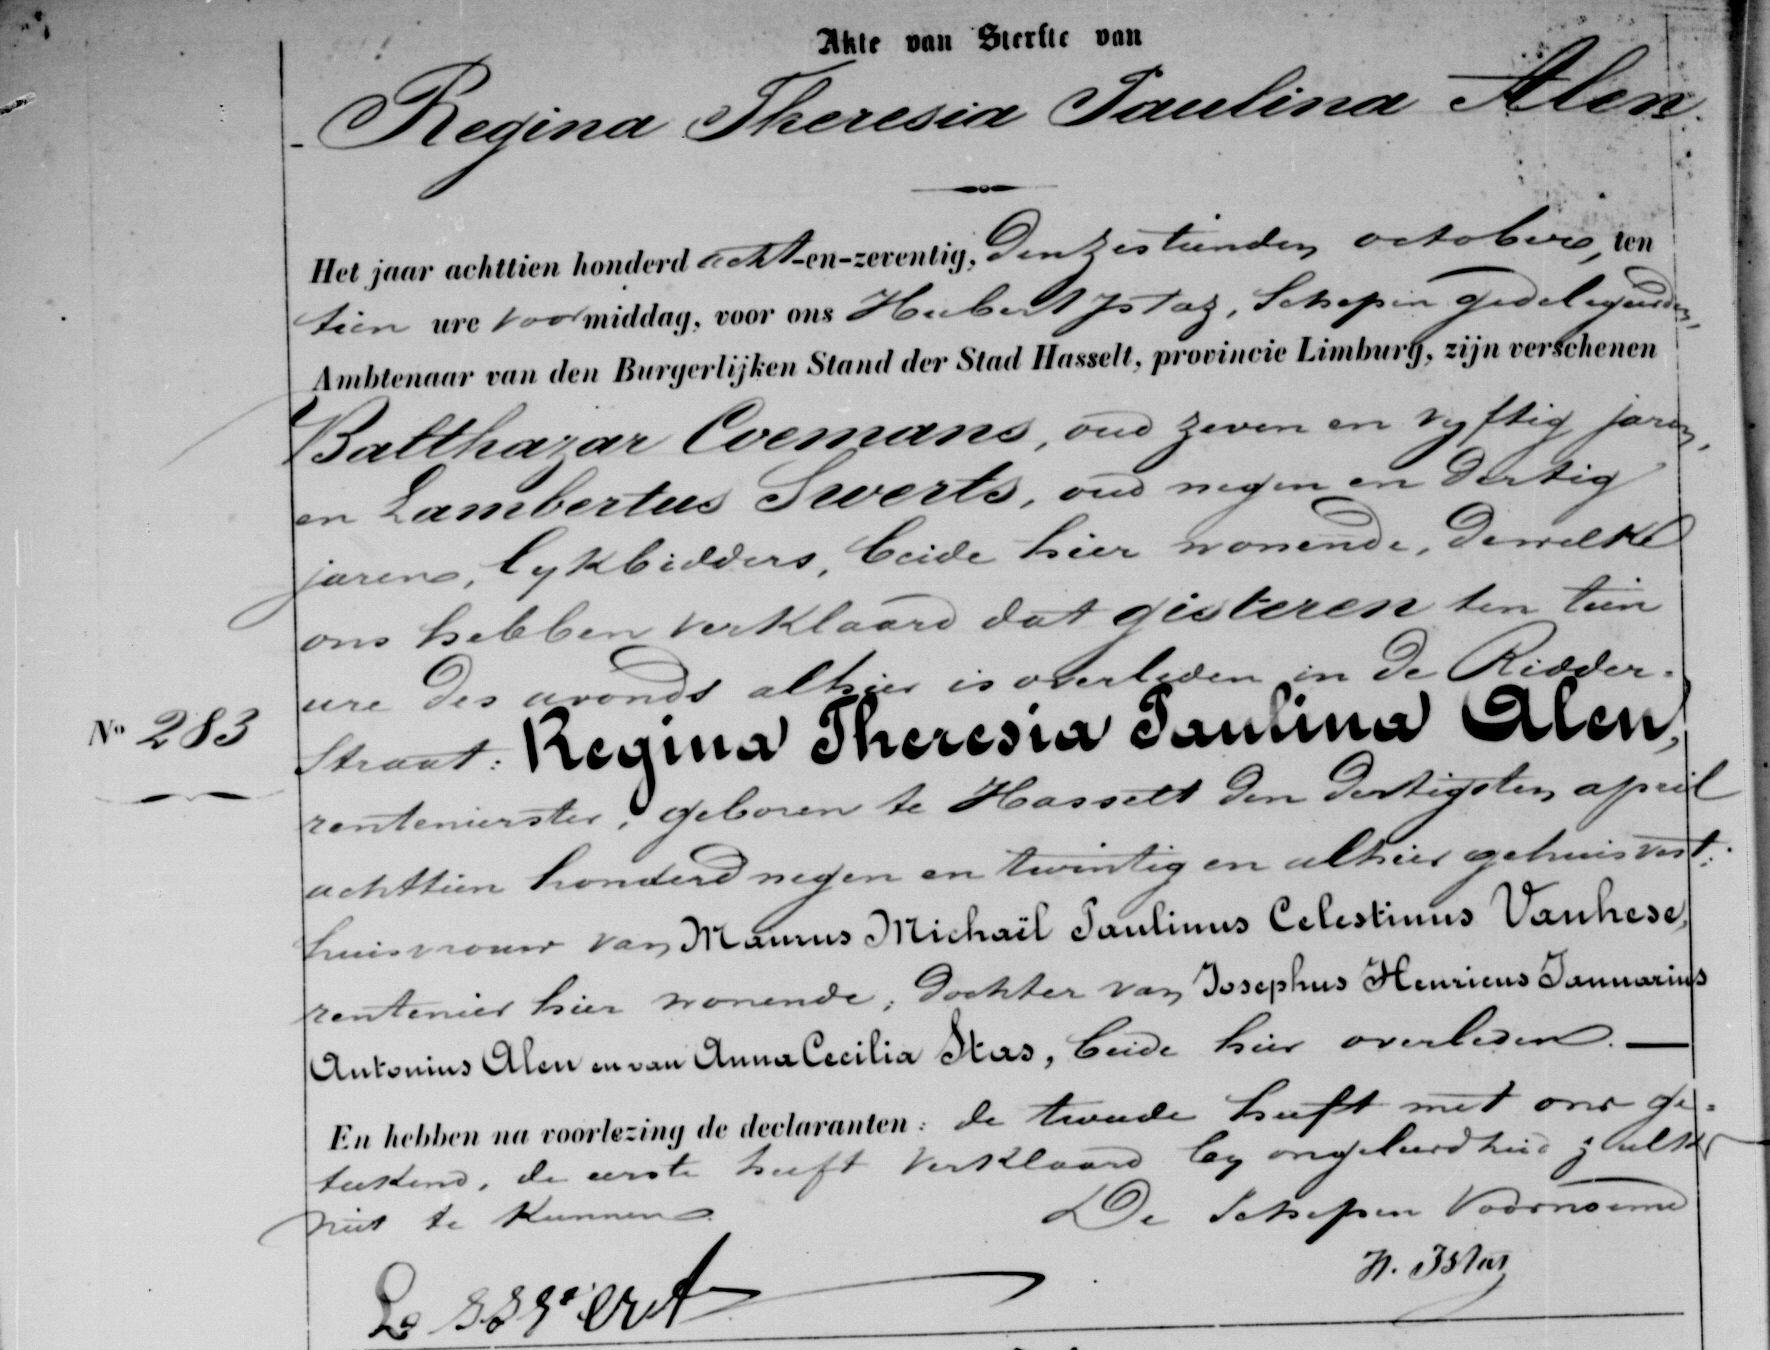 Akte van Sterfte van
Regina Theresia Paulina Alen.
Het jaar achttien honderd acht-en-zeventig, den zestienden october, ten
tien ure voormiddag, voor ons Hubert Istaz, Schepen gedelegeerden,
Ambtenaar van den Burgerlijken Stand der Stad Hasselt, provincie Limburg, zijn verschenen
Balthazar Coemans, oud zeven en vyftig jaren,
en Lambertus Swerts, oud negen en dertig
jaren, lykbidders, beide hier wonende, dewelke
ons hebben verklaard dat gisteren ten tien
ure des avonds alhier is overleden in de Ridder-
Straat: Regina Theresia Paulina Alen,
rentenierster, geboren te Hasselt den dertigsten april
achttien honderd negen en twintig en alhier gehuisvest;
No 283
huisvrouw van Maurus Michaël Paulinus Celestinus Vanhese,
rentenier hier wonende, dochter van Josephus Henricus Januarius
Antonius Alen en van Anna Cecilia Stas, beide hier overleden. —
En hebben na voorlezing de declaranten: de tweede heeft met ons ge-
teekend, de eerste heeft verklaard by ongeleerdheid zulks
niet te kunnen.
De Schepen Voornoemd
H. Istaz